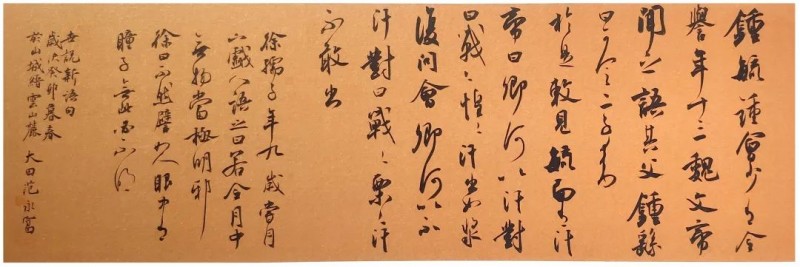 鍾毓鍾會少有令
譽年十三魏文帝
聞之語其父鍾繇
曰可令二子來
於是敕見毓面有汗
帝曰卿何以汗對
曰戰〻惶〻汗出如漿
復問會卿何以不
汗對曰戰〻栗〻汗
不敢出
徐孺子年九歲嘗月
下戲人語之曰若令月中
無物當極明邪
徐曰不然譬如人眼中有
瞳子無此必不明
世說新語句
歲次癸卯暮春
於山城縉雲山麓 大田范永富